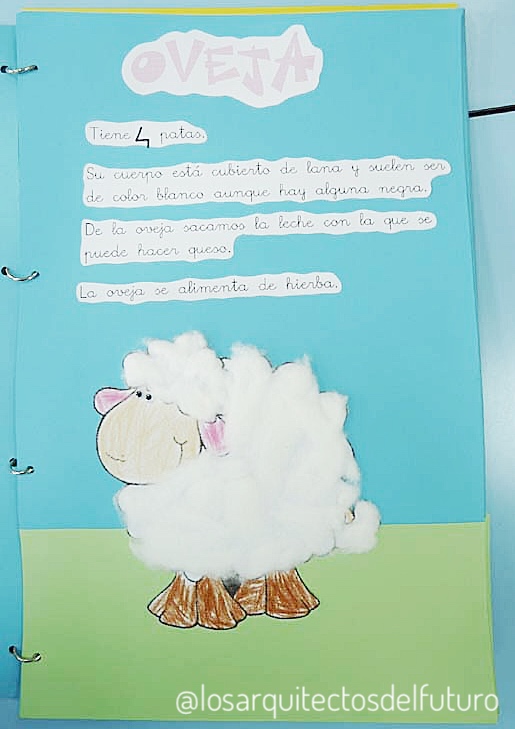 OVEJA
Tiene 4 patas.
Su cuerpo está cubierto de lana y suelen ser
de color blanco aunque hay alguna negra.
De la oveja sacamos la leche con la que se
puede hacer queso.
La oveja se alimenta de hierba.
@losarquitectosdelfuturo